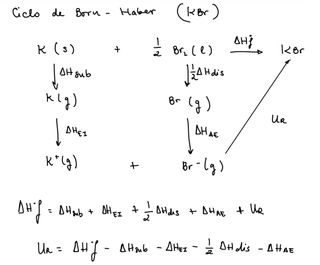 Ciclo de Born-Haber (KBr)
K (s) + 1/2 Br₂ (l) ΔHf KBr
ΔHsub 1/2 ΔHdis
K(g) Br (g)
ΔHEI ΔHAE UR
K⁺(g) + Br⁻(g)
ΔH°f = ΔHsub + ΔHEI + 1/2 ΔHdis + ΔHAE + UR
UR = ΔH°f - ΔHsub - ΔHEI - 1/2 ΔHdis - ΔHAE